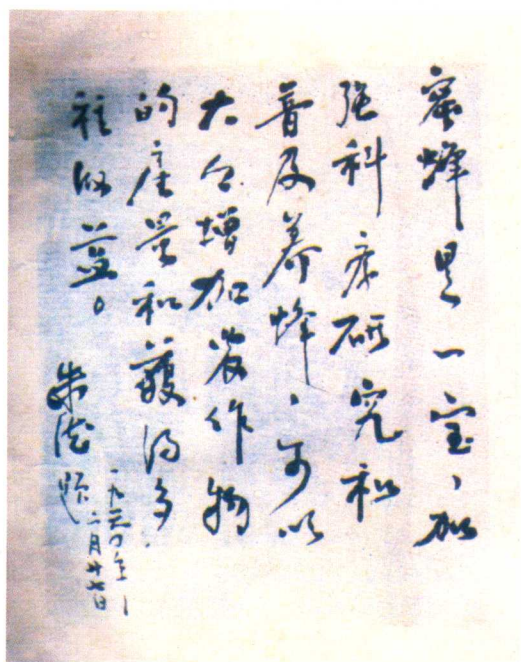 蜜蜂是一宝，加
强科学研究和
普及养蜂，可以
大大增加农作物
的产量和获得多
种收益。
朱德题
一九六〇年
二月廿七日